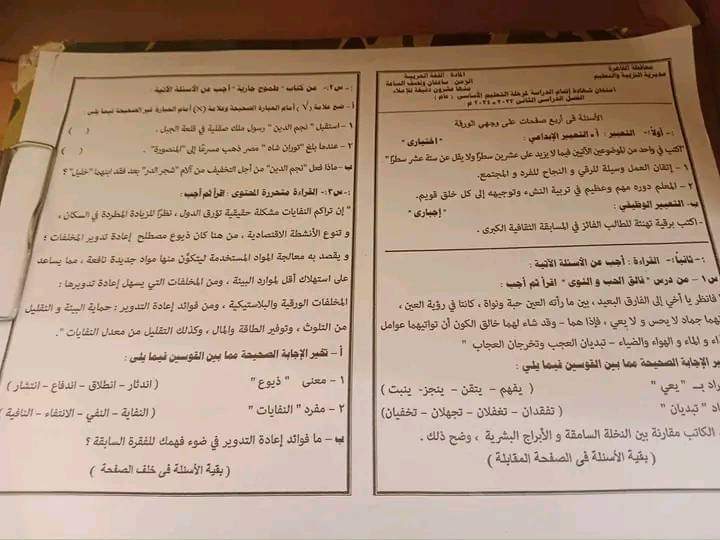 محافظة القاهرة
مديرية التربية والتعليم
المادة : اللغة العربية
الزمن : ساعتان ونصف الساعة
منها عشرون دقيقة للإملاء
امتحان شهادة إتمام الدراسة لمرحلة التعليم الأساسى ( عام )
الفصل الدراسى الثانى ٢٠٢٣ - ٢٠٢٤ م
الأسئلة فى أربع صفحات على وجهي الورقة
أولاً:- التعبير : أ- التعبير الإبداعي : " إختيارى "
"اكتب في واحد من الموضوعين الآتيين فيما لا يزيد على عشرين سطرًا ولا يقل عن ستة عشر سطرًا"
١ - إتقان العمل وسيلة للرقي و النجاح للفرد و المجتمع.
٢ - المعلم دوره مهم وعظيم في تربية النشء وتوجيهه إلى كل خلق قويم.
ب- التعبير الوظيفي : " إجبارى "
- اكتب برقية تهنئة للطالب الفائز في المسابقة الثقافية الكبرى .
ثانياً:- القراءة : أجب عن الأسئلة الآتية :
س١ - من درس " فالق الحب و النوى " اقرأ ثم أجب :
" فانظر يا أخي إلى الفارق البعيد، بين ما رأته العين حبة ونواة ، كانتا في رؤية العين ،
جماد لا يحس و لا يعي ، فإذا هما – وقد شاء لهما خالق الكون أن تواتيهما عوامل
و الماء و الهواء والضياء – تبديان العجب وتخرجان العجاب "
الإجابة الصحيحة مما بين القوسين فيما يلي :
بـ " يعي " ( يفهم – يتقن – ينجز- ينبت )
" تبديان " ( تفقدان – تغفلان – تجهلان - تخفيان)
الكاتب مقارنة بين النخلة السامقة و الأبراج البشرية ، وضح ذلك .
( بقية الأسئلة فى الصفحة المقابلة )
س٢:- من كتاب " طموح جارية " أجب عن الأسئلة الآتية :
أ – ضع علامة (√) أمام العبارة الصحيحة وعلامة (×) أمام العبارة غير الصحيحة فيما يلي
١ - استقبل " نجم الدين " رسول ملك صقلية في قلعة الجبل . ( )
٢ - عندما بلغ "توران شاه " مصر ذهب مسرعًا إلى "المنصورة" . ( )
ب- ماذا فعل "نجم الدين" من أجل التخفيف من آلام "شجر الدر" بعد فقد ابنهما "خليل" ؟
س٣:- القراءة متحررة المحتوى : اقرأ ثم أجب :
" إن تراكم النفايات مشكلة حقيقية تؤرق الدول ، نظرًا للزيادة المطردة في السكان ،
و تنوع الأنشطة الاقتصادية ، من هنا كان ذيوع مصطلح إعادة تدوير المخلفات ؛
و يقصد به معالجة المواد المستخدمة ليتكوَّن منها مواد جديدة نافعة ، مما يساعد
على استهلاك أقل لموارد البيئة ، ومن المخلفات التي يسهل إعادة تدويرها :
المخلفات الورقية والبلاستيكية ، ومن فوائد إعادة التدوير : حماية البيئة و التقليل
من التلوث ، وتوفير الطاقة والمال ، وكذلك التقليل من معدل النفايات ".
أ – تخير الإجابة الصحيحة مما بين القوسين فيما يلي :
١ - معنى " ذيوع " ( اندثار – انطلاق – اندفاع – انتشار )
٢ - مفرد " النفايات " ( النفاية – النفي – الانتفاء – النافية )
ب – ما فوائد إعادة التدوير في ضوء فهمك للفقرة السابقة ؟
( بقية الأسئلة فى خلف الصفحة )